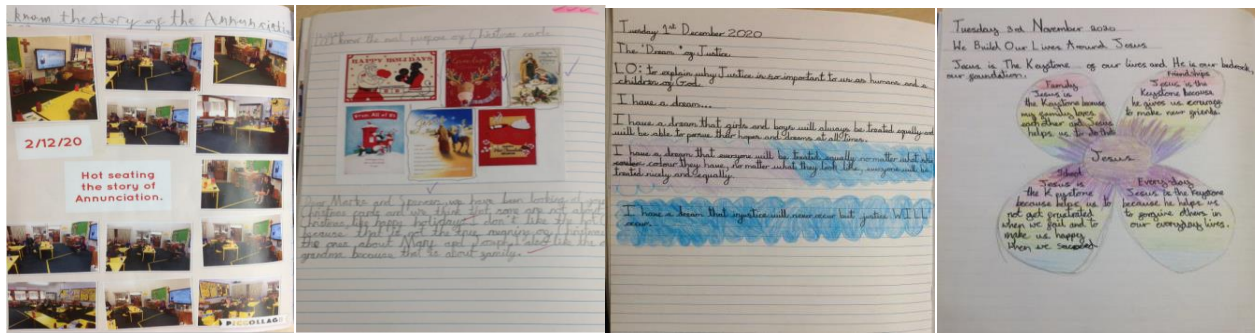 know the story of the Annunciation
2/12/20
Hot seating
the story of
Annunciation.
PICCOLLAGE
know the real purpose of Christmas cards
HAPPY HOLIDAYS
Marks and Spencer, we have been looking at your
Christmas cards and we think that some are not about
because that is not the true meaning of Christmas
the ones about Mary and Joseph
grandma because that is about family.
Tuesday 1st December 2020
The "Dream" of Justice
LO: to explain why Justice is so important to us as humans and a
children of God.
I have a dream...
I have a dream that girls and boys will always be treated equally and
will be able to persue their hopes and dreams at all times.
I have a dream that everyone will be treated equally no matter what
colour they have, no matter what they look like, everyone will be
treated nicely and equally.
I have a dream that injustice will never occur but justice WILL
occur.
Tuesday 3rd November 2020
We Build Our Lives Around Jesus
Jesus is The Keystone of our lives and He is our bedrock,
our foundation.
Family
Jesus is
the Keystone because
my family loves
each other and Jesus
helps us to do that
Friendships
Jesus is the
Keystone because
he gives us courage
to make new friends.
Jesus
School
Jesus is
the Keystone
because helps us to
not get frustrated
when we fail and to
make us happy
when we succeed
Everyday
Jesus is the Keystone
because he helps us
to forgive others in
our everyday lives.